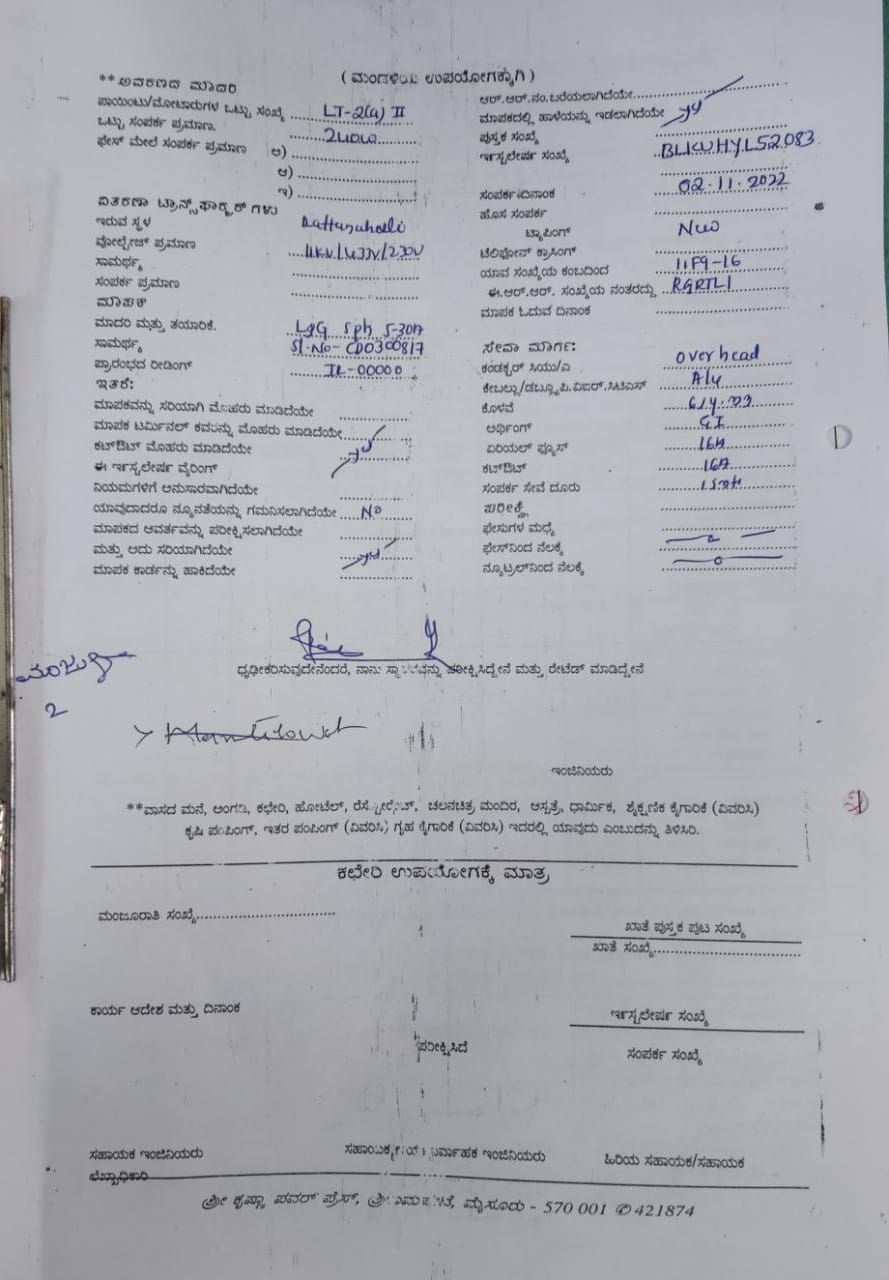 (ಮಂಡಳಿಯ ಉಪಯೋಗಕ್ಕಾಗಿ)
**ಆವರಣದ ಮಾದರಿ
ಪಾಯಿಂಟು/ಮೋಟಾರುಗಳ ಒಟ್ಟು ಸಂಖ್ಯೆ LT-2(a) II
ಒಟ್ಟು ಸಂಪರ್ಕ ಪ್ರಮಾಣ
ಫೇಸ್ ಮೇಲೆ ಸಂಪರ್ಕ ಪ್ರಮಾಣ ಅ)
ಆ)
ಇ)
ವಿತರಣಾ ಟ್ರಾನ್ಸ್‌ಫಾರ್ಮರ್ ಗಳು
ಇರುವ ಸ್ಥಳ
ವೋಲ್ಟೇಜ್ ಪ್ರಮಾಣ 11KV/433V/230V
ಸಾಮರ್ಥ್ಯ
ಸಂಪರ್ಕ ಪ್ರಮಾಣ
ಮಾಪಕ
ಮಾದರಿ ಮತ್ತು ತಯಾರಿಕೆ. L&G 5-30A
ಸಾಮರ್ಥ್ಯ Sl.No- CD0300817
ಪ್ರಾರಂಭದ ರೀಡಿಂಗ್ IR-00000
ಇತರೆ:
ಮಾಪಕವನ್ನು ಸರಿಯಾಗಿ ಮೊಹರು ಮಾಡಿದೆಯೇ
ಮಾಪಕ ಟರ್ಮಿನಲ್ ಕವರನ್ನು ಮೊಹರು ಮಾಡಿದೆಯೇ
ಕಟ್‌ಔಟ್ ಮೊಹರು ಮಾಡಿದೆಯೇ
ಈ ಇನ್ಸ್ಟಲೇಷನ್ ವೈರಿಂಗ್
ನಿಯಮಗಳಿಗೆ ಅನುಸಾರವಾಗಿದೆಯೇ
ಯಾವುದಾದರೂ ನ್ಯೂನತೆಯನ್ನು ಗಮನಿಸಲಾಗಿದೆಯೇ No
ಮಾಪಕದ ಆವರ್ತವನ್ನು ಪರೀಕ್ಷಿಸಲಾಗಿದೆಯೇ
ಮತ್ತು ಅದು ಸರಿಯಾಗಿದೆಯೇ
ಮಾಪಕ ಕಾರ್ಡನ್ನು ಹಾಕಿದೆಯೇ
ಆರ್.ಆರ್.ನಂ.ಬರೆಯಲಾಗಿದೆಯೇ
ಮಾಪಕದಲ್ಲಿ ಹಾಳೆಯನ್ನು ಇಡಲಾಗಿದೆಯೇ
ಪುಸ್ತಕ ಸಂಖ್ಯೆ
ಇನ್ಸ್ಟಲೇಷನ್ ಸಂಖ್ಯೆ BLKWHYL52083
ಸಂಪರ್ಕ ದಿನಾಂಕ 02.11.2022
ಹೊಸ ಸಂಪರ್ಕ
ಟ್ಯಾಪಿಂಗ್ New
ಟೆಲಿಫೋನ್ ಕ್ರಾಸಿಂಗ್
ಯಾವ ಸಂಖ್ಯೆಯ ಕಂಬದಿಂದ 11F9-16
ಈ.ಆರ್.ಆರ್. ಸಂಖ್ಯೆಯ ನಂತರದ್ದು RGRTL1
ಮಾಪಕ ಓದುವ ದಿನಾಂಕ
ಸೇವಾ ಮಾರ್ಗ:
ಕಂಡಕ್ಟರ್ ಸಿಯು/ಎ overhead
ಕೇಬಲ್ಲು/ಡಬ್ಲ್ಯೂ.ಪಿ.ವಿಐಆರ್.ಸಿಟಿಎಸ್ Aly
ಕೊಳವೆ
ಅರ್ಥಿಂಗ್ GI
ಏರಿಯಲ್ ಫ್ಯೂಸ್ 16A
ಕಟ್‌ಔಟ್ 16A
ಸಂಪರ್ಕ ಸೇವೆ ದೂರು
ಪರೀಕ್ಷೆ
ಫೇಸುಗಳ ಮಧ್ಯೆ
ಫೇಸ್‌ನಿಂದ ನೆಲಕ್ಕೆ
ನ್ಯೂಟ್ರಲ್‌ನಿಂದ ನೆಲಕ್ಕೆ
ಧೃಢೀಕರಿಸುವುದೇನೆಂದರೆ, ನಾನು ಪರೀಕ್ಷಿಸಿದ್ದೇನೆ ಮತ್ತು ರೇಟೆಡ್ ಮಾಡಿದ್ದೇನೆ
2
ಇಂಜಿನಿಯರು
**ವಾಸದ ಮನೆ, ಅಂಗಡಿ, ಕಛೇರಿ, ಹೋಟೆಲ್, ರೆಸ್ಟೋರೆಂಟ್, ಚಲನಚಿತ್ರ ಮಂದಿರ, ಆಸ್ಪತ್ರೆ, ಧಾರ್ಮಿಕ, ಶೈಕ್ಷಣಿಕ ಕೈಗಾರಿಕೆ (ವಿವರಿಸಿ)
ಕೃಷಿ ಪಂಪಿಂಗ್, ಇತರ ಪಂಪಿಂಗ್ (ವಿವರಿಸಿ) ಗೃಹ ಕೈಗಾರಿಕೆ (ವಿವರಿಸಿ) ಇದರಲ್ಲಿ ಯಾವುದು ಎಂಬುದನ್ನು ತಿಳಿಸಿರಿ.
ಕಛೇರಿ ಉಪಯೋಗಕ್ಕೆ ಮಾತ್ರ
ಮಂಜೂರಾತಿ ಸಂಖ್ಯೆ
ಖಾತೆ ಪುಸ್ತಕ ಪುಟ ಸಂಖ್ಯೆ
ಖಾತೆ ಸಂಖ್ಯೆ
ಕಾರ್ಯ ಆದೇಶ ಮತ್ತು ದಿನಾಂಕ
ಇನ್ಸ್ಟಲೇಷನ್ ಸಂಖ್ಯೆ
ಪರೀಕ್ಷಿಸಿದೆ
ಸಂಪರ್ಕ ಸಂಖ್ಯೆ
ಸಹಾಯಕ ಇಂಜಿನಿಯರು ಸಹಾಯಕ ಕಾರ್ಯನಿರ್ವಾಹಕ ಇಂಜಿನಿಯರು ಹಿರಿಯ ಸಹಾಯಕ/ಸಹಾಯಕ
ಲೆಖ್ಖಾಧಿಕಾರಿ
ಶ್ರೀ ಕೃಷ್ಣಾ ಪವರ್ ಪ್ರೆಸ್, ಶ್ರೀರಾಮಪೇಟೆ, ಮೈಸೂರು - 570 001 ✆ 421874